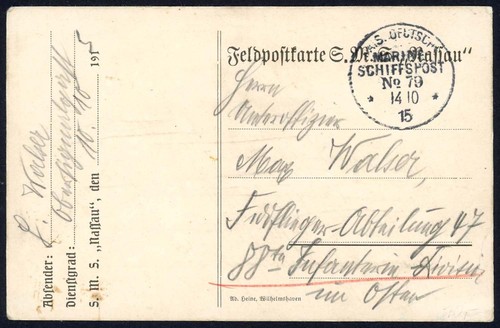 Feldpostkarte S. M. S. „Nassau“
KAIS. DEUTSCHE
MARINE
SCHIFFSPOST
No 79
* 14 10 *
15
Herrn
Unteroffizier
Max Walser,
Feldflieger-Abteilung 47
88te Infanterie-Division
im Osten
Absender: L. Walser
Dienstgrad:
S. M. S. „Nassau“, den 10. 10 1915
Ad. Heine, Wilhelmshaven